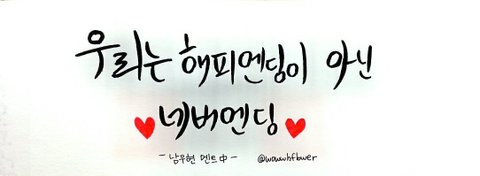 우리는 해피엔딩이 아닌
네버엔딩
- 남우현 멘트中 - @wowwhflower